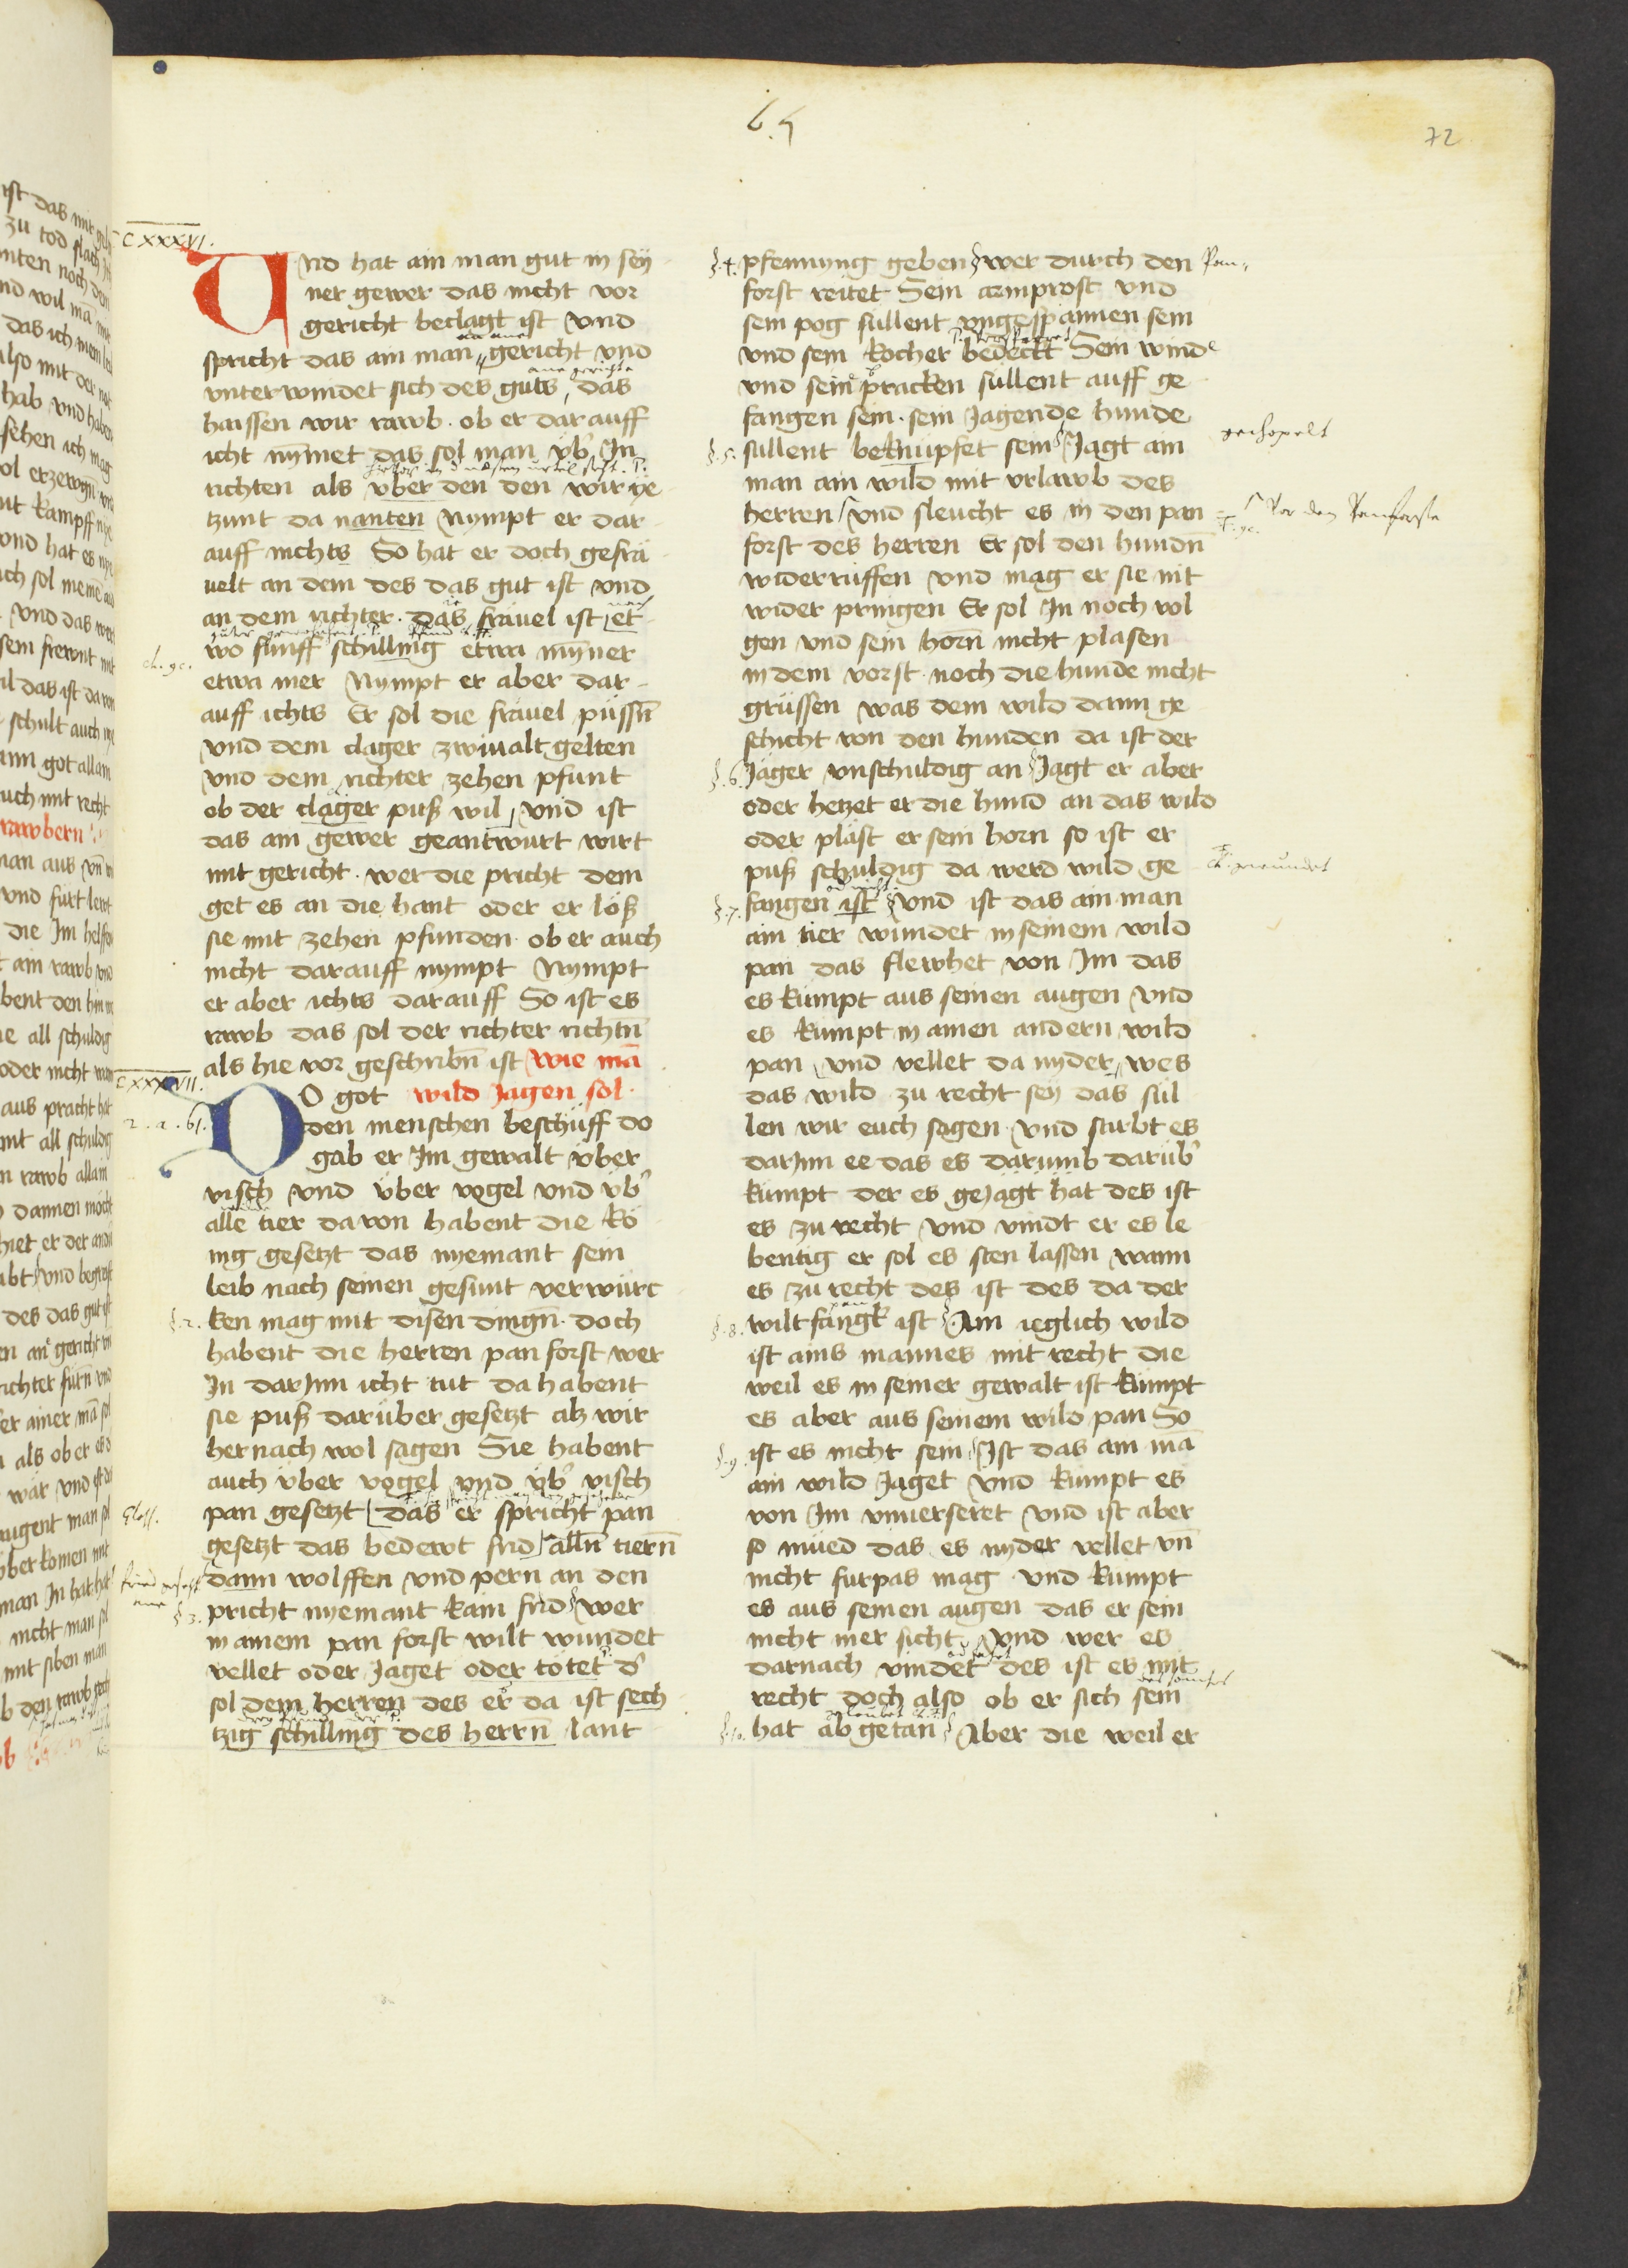 65
72
CXXXVI.
Und hat ain man gut in sey
ner gewer das nicht vor
gericht beclagt ist vnd
spricht das ain man gericht vnd
vnterwindet sich des guts das
ane gerichte
haissen wir rawb · ob er darauff
icht nymet das sol man vb̕ In
richten als vber den den wir ye
tzunt da nanten Nympt er dar
auff nichts So hat er doch gefrä
uelt an dem des das gut ist vnd
an dem richter · das fräuel ist et
wo funff schilling etwa mynner
etwa mer Nympt er aber dar
auff ichts Er sol die fräuel püssn̄
vnd dem clager zwiualt gelten
vnd dem richter zehen pfunt
ob der clager puß wil vnd ist
das ain gewer geantwurt wirt
mit gericht · wer die pricht dem
get es an die hant oder er löß
sie mit zehen pfunden · ob er auch
nicht darauff nympt Nympt
er aber ichts darauff So ist es
rawb das sol der richter richtn̄
als hie vor geschribn̄ ist wie mā
CXXXVII.
DO got wild Jagen sol ·
2. a. 61.
den menschen beschüff do
gab er Im gewalt vber
visch vnd vber vogel vnd vb̕
alle tier dauon habent die kö
nig gesetzt das nyemant sein
leib nach seinen gesunt verwürc
§. 2. ken mag mit disen dingn̄ · doch
habent die herren pan forst wer
In darInn icht tut da habent
sie puß darüber gesetzt alz wir
hernach wol sagen Sie habent
auch vber vogel vnd vb̕ visch
Gloss. pan gesetzt das er spricht pan
gesetzt das bedewt frid alln̄ tiern̄
dann wolffen vnd pern an den
§ 3. pricht nyemant kain frid wer
in ainem pan forst wilt wundet
vellet oder Jaget oder totet d̕
sol dem herren des er da ist sech
tzig schilling des herrn̄ lant
§. 4. pfennyng geben wer durch den Pan
forst reitet Sein armprost vnd
sein pog sullent vngespannen sein
vnd sein kocher bedeckt Sein wind
vnd sein pracken sullent auff ge
fangen sein · sein Jagende hunde
§. 5. sullent beknüpfet sein Jagt ain
man ain wild mit vrlawb des
herren vnd fleucht es in den pan
forst des herren Er sol den hundn̄
widerruffen vnd mag er sie nit
wider pringen Er sol In noch vol
gen vnd sein horn̄ nicht plasen
in dem vorst · noch die hunde nicht
grüssen was dem wild dann ge
schicht von den hunden da ist der
§. 6. Jäger vnschuldig an Jagt er aber
oder hetzet er die hund an das wild
oder pläst er sein horn so ist er
puß schuldig da werd wild ge
§. 7. fangen ist vnd ist das ain man
ain tier wundet in seinem wild
pan das flewhet von Im das
es kumpt aus seinen augen vnd
es kumpt in ainen andern wild
pan vnd vellet da nyder wes
das wild zu recht sey das sül
len wir euch sagen vnd stirbt es
darInn ee das es darumb darüb̕
kumpt der es geJagt hat des ist
es zu recht vnd vindt er es le
bentig er sol es sten lassen wann
es zu recht des ist des da der
§. 8. wiltfangk ist Ain ieglich wild
ist ains mannes mit recht die
weil es in seiner gewalt ist kumpt
es aber aus seinem wild pan So
§. 9. ist es nicht sein Ist das ain mā
ain wild Jaget vnd kumpt es
von Im vnuerseret vnd ist aber
so müed das es nyder vellet vn̄
nicht furpas mag vnd kumpt
es aus seinen augen das er sein
nicht mer sicht vnd wer es
darnach vindet des ist es mit
recht doch also ob er sich sein
§. 10. hat abgetan Aber die weil er